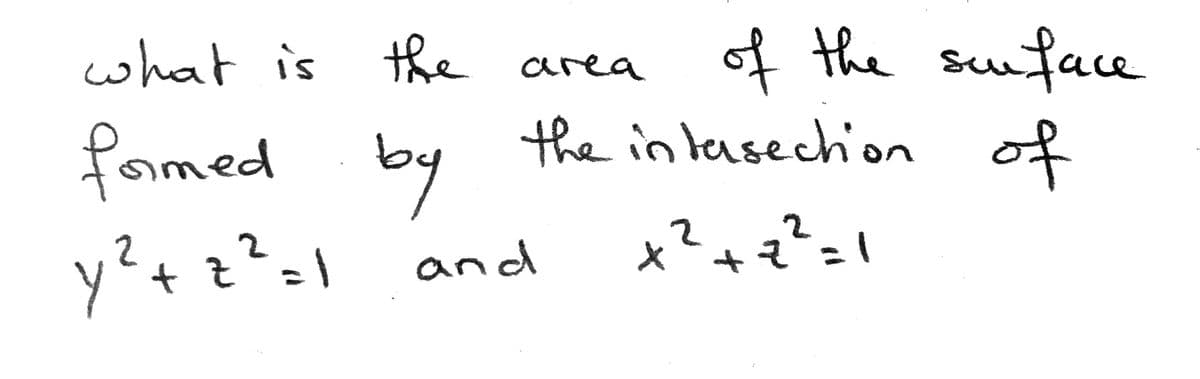 what is the area of the surface
formed by the intersection of
y² + z² = 1 and x² + z² = 1